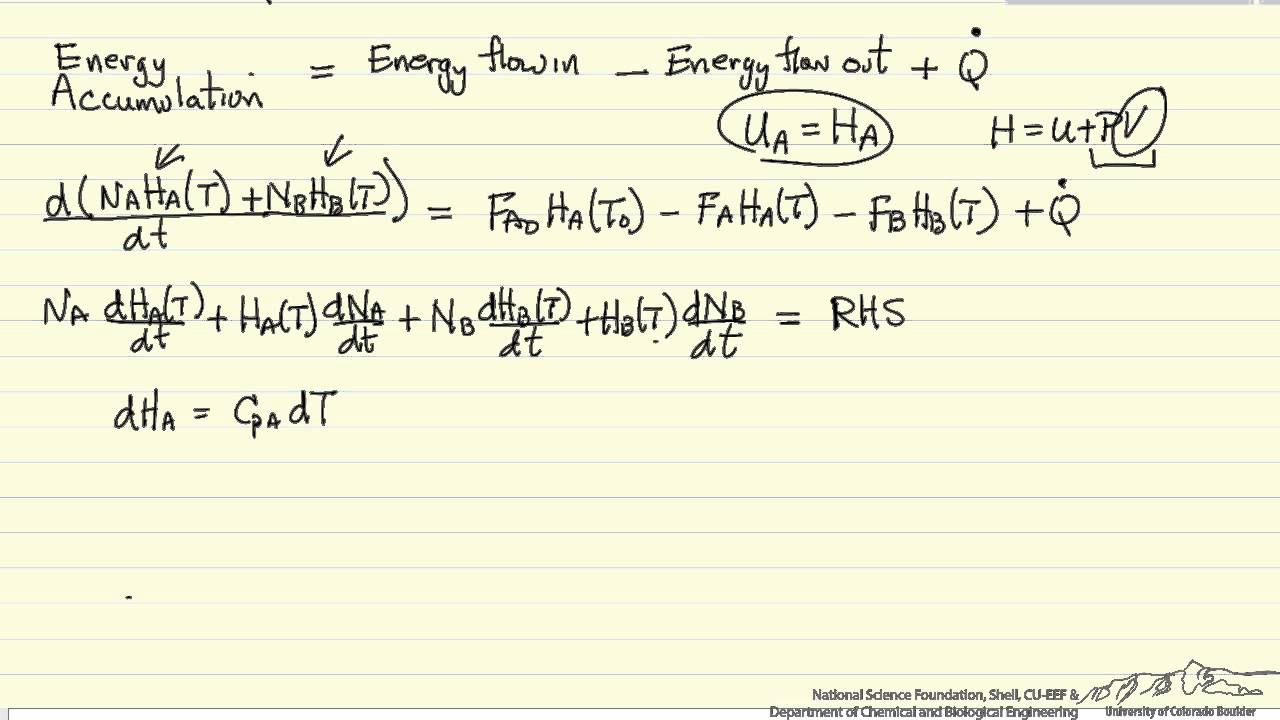 Energy Accumulation = Energy flow in − Energy flow out + Q̇
U_A = H_A H = U + PV
d(N_A H_A(T) + N_B H_B(T))/dt = F_A0 H_A(T_0) − F_A H_A(T) − F_B H_B(T) + Q̇
N_A dH_A(T)/dt + H_A(T) dN_A/dt + N_B dH_B(T)/dt + H_B(T) dN_B/dt = RHS
dH_A = C_PA dT
National Science Foundation, Shell, CU-EEF &
Department of Chemical and Biological Engineering University of Colorado Boulder